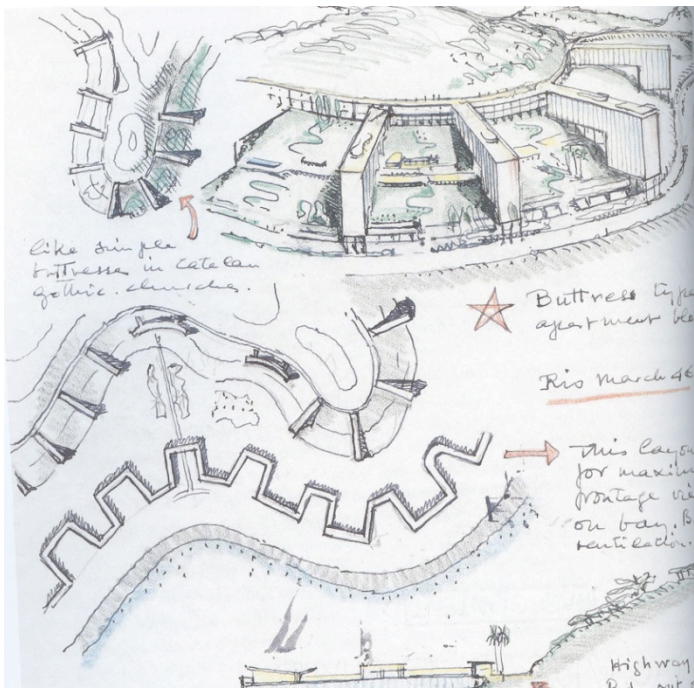 like simple
buttresses in Catalan
gothic churches.
Buttress type
apartment
Rio March
This layout
for
frontage
on bay.
ventilation.
Highway